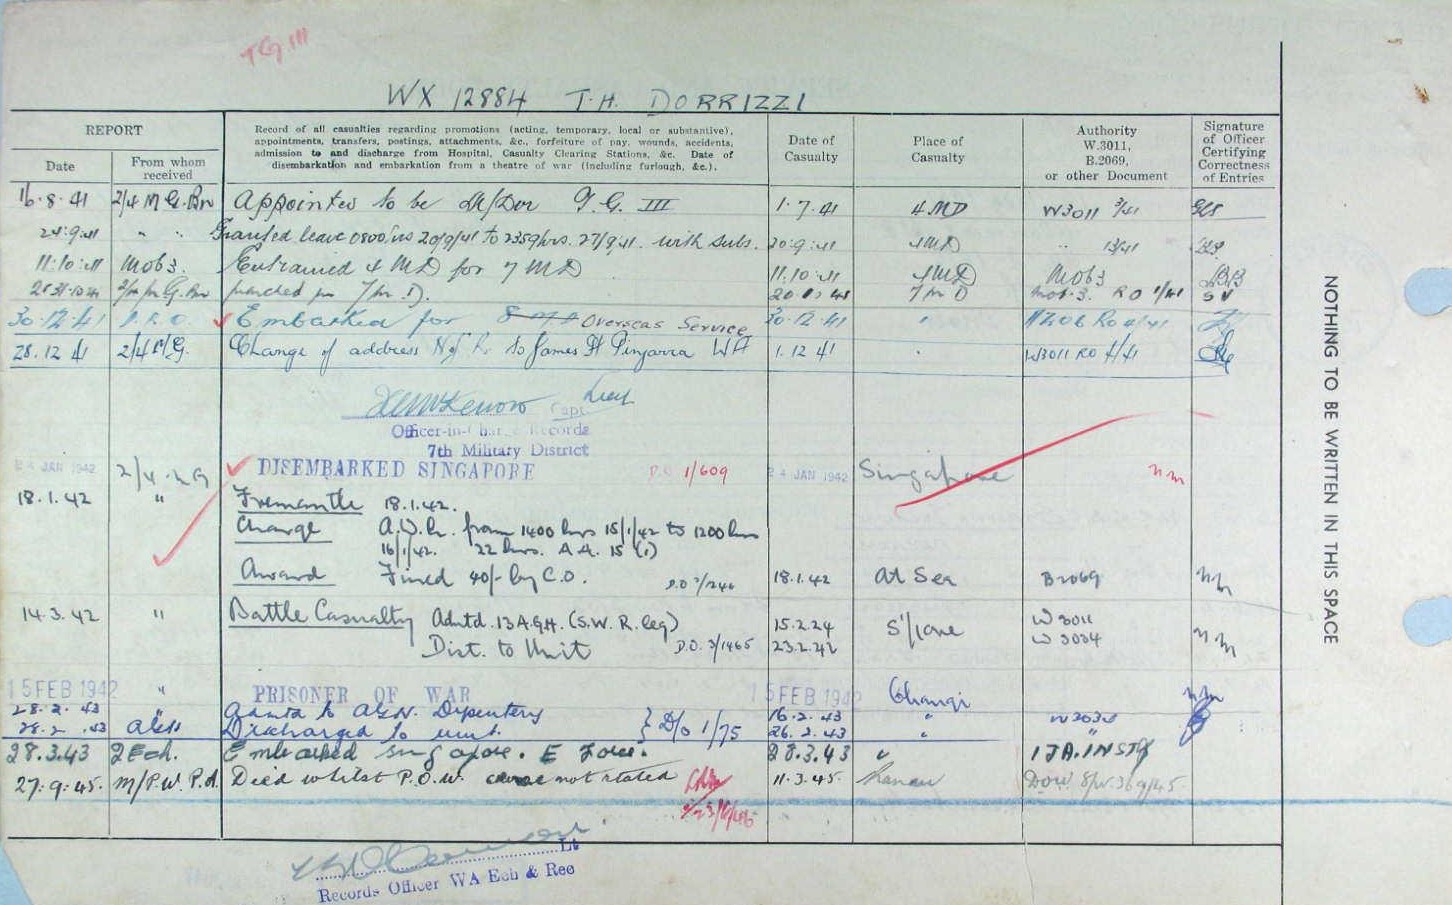 TG III
WX 12884 T.H. DORRIZZI
REPORT
Date
From whom received
Record of all casualties regarding promotions (acting, temporary, local or substantive),
appointments, transfers, postings, attachments, &c., forfeiture of pay, wounds, accidents,
admission to and discharge from Hospital, Casualty Clearing Stations, &c. Date of
disembarkation and embarkation from a theatre of war (including furlough, &c.).
Date of Casualty
Place of Casualty
Authority W.3011, B.2069, or other Document
Signature of Officer Certifying Correctness of Entries
16.8.41 2/4 M.G.Bn Appointed to be T.G. III 1.7.41 4 MD W3011 3/41
24.9.41 " " Granted leave 0800 hrs 20/9/41 to 2359 hrs. 27/9/41. with subs. 20.9.41 4 MD " 13/41
11.10.41 Mob 3. Entrained 4 MD for 7 MD 11.10.41 4 MD Mob 3 BB
2/4 M.G.Bn 7 M D. 7 M D Mob. 3. RO 1/41 SV
30.12.41 Embarked for Overseas Service 30.12.41 " RO 4/41
28.12 41 2/4 M/G. Change of address N of K. to James St Pinjarra WA 1.12 41 " W3011 RO 4/41
Capt.
Officer-in-Charge Records
7th Military District
24 JAN 1942 2/4 M G DISEMBARKED SINGAPORE D.O 1/609 24 JAN 1942 Singapore
18.1.42 " Fremantle 18.1.42.
Charge A.W.L. from 1400 hrs 15/1/42 to 1200 hrs
16/1/42. 22 hrs. A.A. 15 (1)
Award Fined 40/- by C.O. D.O 2/246 18.1.42 At Sea B2069
14.3.42 " Battle Casualty Admtd. 13 A.G.H. (S.W. R. leg) 15.2.24 S'pore W 3011
Dist. to Unit D.O. 3/1465 23.2.42 W 3034
15 FEB 1942 " PRISONER OF WAR 15 FEB 1942 Changi
28.2.43 " to AGH. Dysentery } D/o 1/75 16.2.43 " W3034
28.2.43 AGH Discharged to unit. 26.2.43 "
28.3.43 2 Ech. Embarked Singapore. E Force. 28.3.43 " IJA. INSTR
27.9.45. M/P.W. P.A. Died whilst P.O.W. cause not stated 11.3.45. Ranau
Lt
Records Officer WA Ech & Rec
NOTHING TO BE WRITTEN IN THIS SPACE